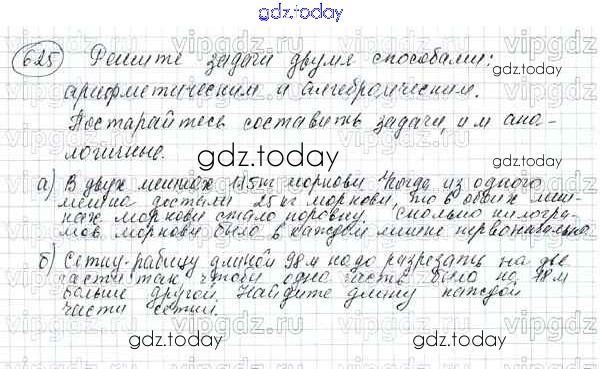 gdz.today
625 Решите задачи двумя способами:
gdz.today
арифметическим и алгебраическим.
Постарайтесь составить задачи, им ана-
логичные.
gdz.today
а) В двух мешках 115 кг моркови. Когда из одного
мешка достали 25 кг моркови, то в обоих меш-
ках моркови стало поровну. Сколько килогра-
мов моркови было в каждом мешке первоначально
gdz.today
б) Сетку-рабицу длиной 98 м надо разрезать на две
части так, чтобы одна часть была на 18 м
больше другой. Найдите длину каждой
части сетки.
gdz.today
gdz.today